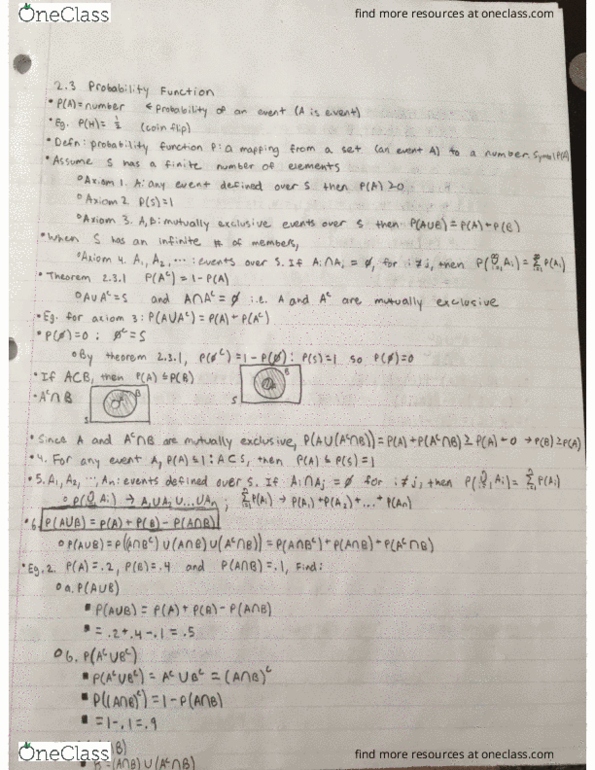 OneClass
find more resources at oneclass.com
2.3 Probability Function
• P(A)=number ← Probability of an event (A is event)
• Eg. P(H)= ½ (coin flip)
• Defn: probability function P: a mapping from a set (an event A) to a number. Symbol P(A)
• Assume S has a finite number of elements
○ Axiom 1. A: any event defined over S then P(A) ≥0
○ Axiom 2. P(S)=1
○ Axiom 3. A,B: mutually exclusive events over S then P(A∪B)=P(A)+P(B)
• When S has an infinite # of members,
○ Axiom 4. A₁, A₂, ...: events over S. If Aᵢ∩Aⱼ = ∅, for i≠j, then P(∪Aᵢ)=ΣP(Aᵢ)
• Theorem 2.3.1 P(Aᶜ)=1-P(A)
○ A∪Aᶜ=S and A∩Aᶜ=∅ i.e. A and Aᶜ are mutually exclusive
• Eg. for axiom 3: P(A∪Aᶜ)=P(A)+P(Aᶜ)
• P(∅)=0 : ∅ᶜ=S
○ By theorem 2.3.1, P(∅ᶜ)=1-P(∅): P(S)=1 so P(∅)=0
• If A⊂B, then P(A)≤P(B)
• Aᶜ∩B
S A B
S A B
• Since A and Aᶜ∩B are mutually exclusive, P(A∪(Aᶜ∩B))=P(A)+P(Aᶜ∩B)≥P(A)+0 → P(B)≥P(A)
• 4. For any event A, P(A)≤1: A⊂S, then P(A)≤P(S)=1
• 5. A₁, A₂, ..., Aₙ: events defined over S. If Aᵢ∩Aⱼ=∅ for i≠j, then P(∪Aᵢ)=ΣP(Aᵢ)
○ P(∪Aᵢ) → A₁∪A₂∪...∪Aₙ ; ΣP(Aᵢ) → P(A₁)+P(A₂)+...+P(Aₙ)
• 6. P(A∪B)=P(A)+P(B)-P(A∩B)
○ P(A∪B)=P((A∩Bᶜ)∪(A∩B)∪(Aᶜ∩B))=P(A∩Bᶜ)+P(A∩B)+P(Aᶜ∩B)
• Eg. 2. P(A)=.2, P(B)=.4 and P(A∩B)=.1, Find:
○ a. P(A∪B)
▪ P(A∪B)=P(A)+P(B)-P(A∩B)
▪ =.2+.4-.1=.5
○ b. P(Aᶜ∪Bᶜ)
▪ P(Aᶜ∪Bᶜ)= Aᶜ∪Bᶜ=(A∩B)ᶜ
▪ P((A∩B)ᶜ)=1-P(A∩B)
▪ =1-.1=.9
▪ B=(A∩B)∪(Aᶜ∩B)
OneClass
find more resources at oneclass.com